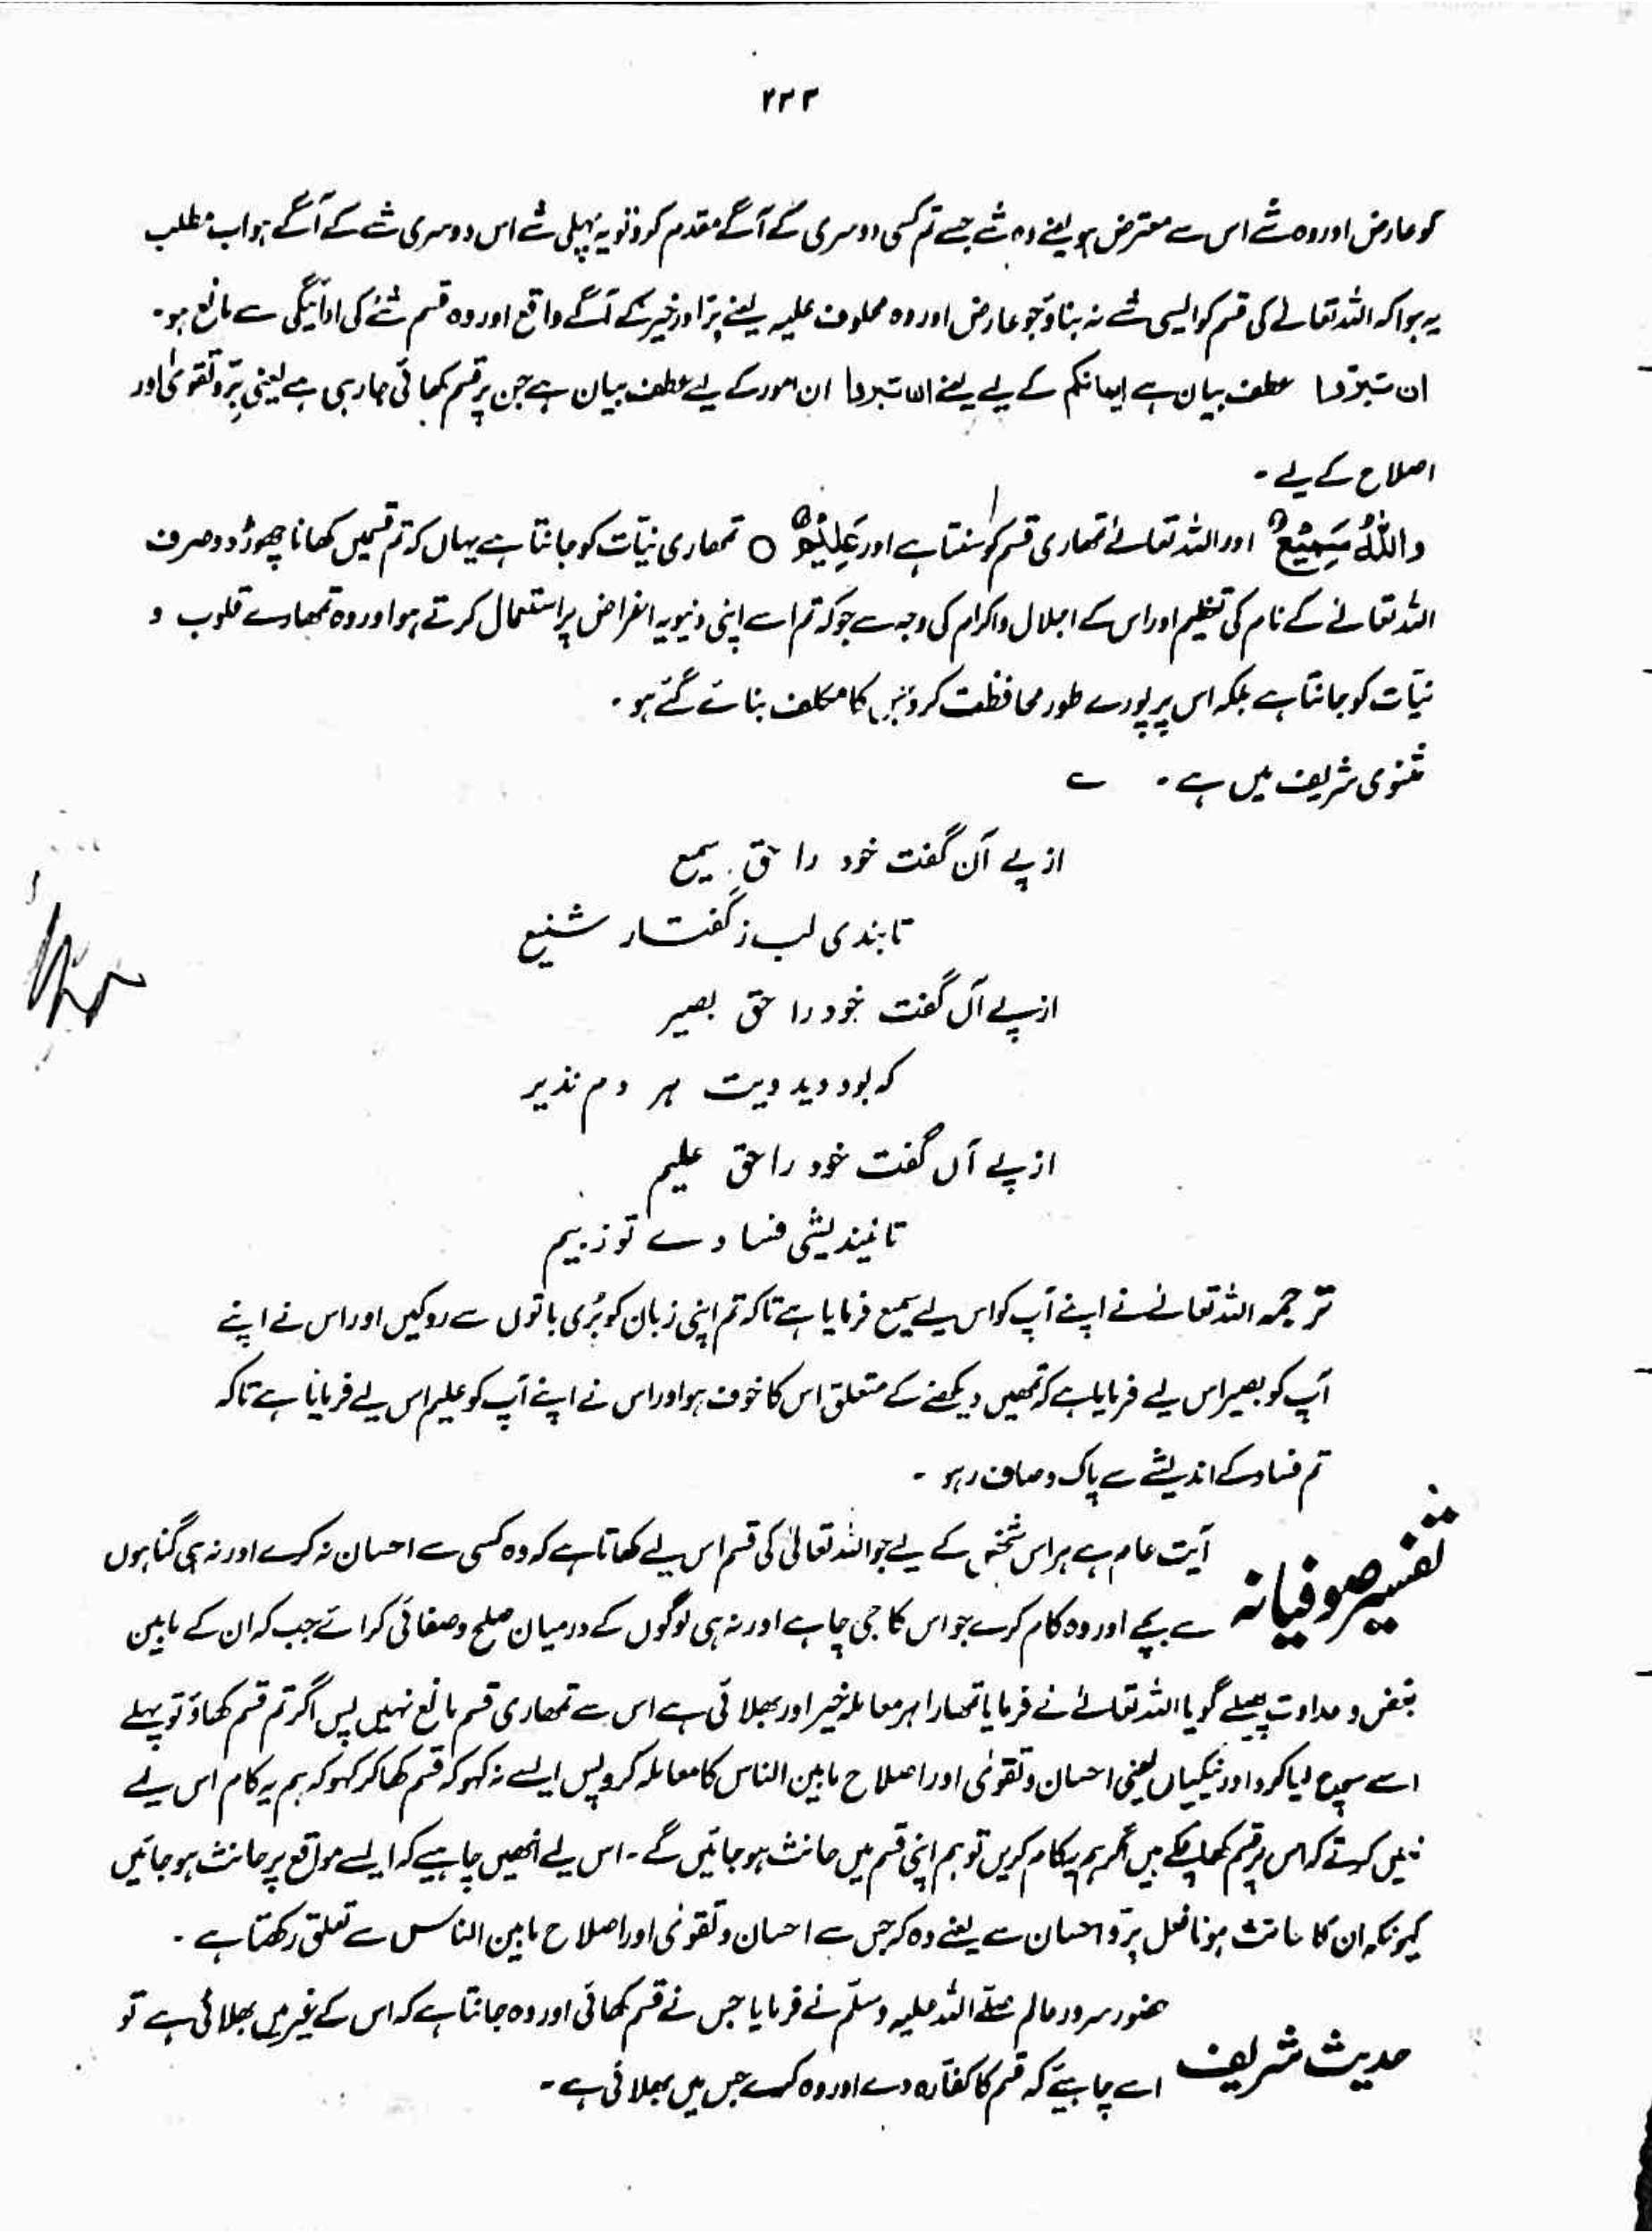 ۲۲۲
کو عارض اور وہ شے اس سے معترض ہو یعنے وہ شے جسے تم کسی دوسری کے آگے مقدم کرو تو یہ پہلی شے اس دوسری شے کے آگے ہو اب مطلب
یہ ہوا کہ اللہ تعالےٰ کی قسم کو ایسی شے نہ بناؤ جو عارض اور وہ محلوف علیہ یعنے بِرّ اور خیر کے آگے واقع اور وہ قسم شے کی ادائیگی سے مانع ہو۔
ان تبرّوا عطف بیان ہے ایمانکم کے لیے یعنے ان تبروا ان امور کے لیے عطف بیان ہے جن پر قسم کھائی جا رہی ہے یعنی بِرّ و تقویٰ اور
اصلاح کے لیے۔
وَاللّٰهُ سَمِیْعٌ اور اللہ تعالےٰ تمھاری قسم کو سنتا ہے اور عَلِیْمٌ ○ تمھاری نیّات کو جانتا ہے یہاں کہ تم قسمیں کھانا چھوڑ دو صرف
اللہ تعالےٰ کے نام کی تعظیم اور اس کے اجلال و اکرام کی وجہ سے جو کہ تم اسے اپنی دنیویہ اغراض پر استعمال کرتے ہو اور وہ تمھارے قلوب و
نیّات کو جانتا ہے بلکہ اس پر پورے طور محافظت کرو جس کا مکلف بنائے گئے ہو۔
مثنوی شریف میں ہے۔ ؎
از پے آن گفت خود را حق سمیع
تا بندی لب ز گفتار شنیع
از پے آں گفت خود را حق بصیر
کہ بود دید ویت ہر دم نذیر
از پے آں گفت خود را حق علیم
تا نیندیشی فسادے تو ز بیم
ترجمہ اللہ تعالےٰ نے اپنے آپ کو اس لیے سمیع فرمایا ہے تاکہ تم اپنی زبان کو بُری باتوں سے روکیں اور اس نے اپنے
آپ کو بصیر اس لیے فرمایا ہے کہ تمھیں دیکھنے کے متعلق اس کا خوف ہو اور اس نے اپنے آپ کو علیم اس لیے فرمایا ہے تاکہ
تم فساد کے اندیشے سے پاک و صاف رہو۔
تفسیر صوفیانہ آیت عام ہے ہر اس شخص کے لیے جو اللہ تعالیٰ کی قسم اس لیے کھاتا ہے کہ وہ کسی سے احسان نہ کرے اور نہ ہی گناہوں
سے بچے اور وہ کام کرے جو اس کا جی چاہے اور نہ ہی لوگوں کے درمیان صلح و صفائی کرائے جب کہ ان کے مابین
بغض و عداوت پھیلے گویا اللہ تعالےٰ نے فرمایا تمھارا ہر معاملہ خیر اور بھلائی ہے اس سے تمھاری قسم مانع نہیں پس اگر تم قسم کھاؤ تو پہلے
اسے سوچ لیا کرو اور نیکیاں یعنی احسان و تقویٰ اور اصلاح مابین الناس کا معاملہ کرو پس ایسے نہ کہو کہ قسم کھا کر کہو کہ ہم یہ کام اس لیے
نہیں کرتے کہ اس پر قسم کھا چکے ہیں اگر ہم یہ کام کریں تو ہم اپنی قسم میں حانث ہو جائیں گے۔ اس لیے انھیں چاہیے کہ ایسے مواقع پر حانث ہو جائیں
کیونکہ ان کا حانث ہونا فعل برّ و احسان سے یعنے وہ کہ جس سے احسان و تقویٰ اور اصلاح مابین الناس سے تعلق رکھتا ہے۔
حضور سرور عالم صلّے اللہ علیہ وسلّم نے فرمایا جس نے قسم کھائی اور وہ جانتا ہے کہ اس کے غیر میں بھلائی ہے تو
حدیث شریف اسے چاہیے کہ قسم کا کفّارہ دے اور وہ کرے جس میں بھلائی ہے۔